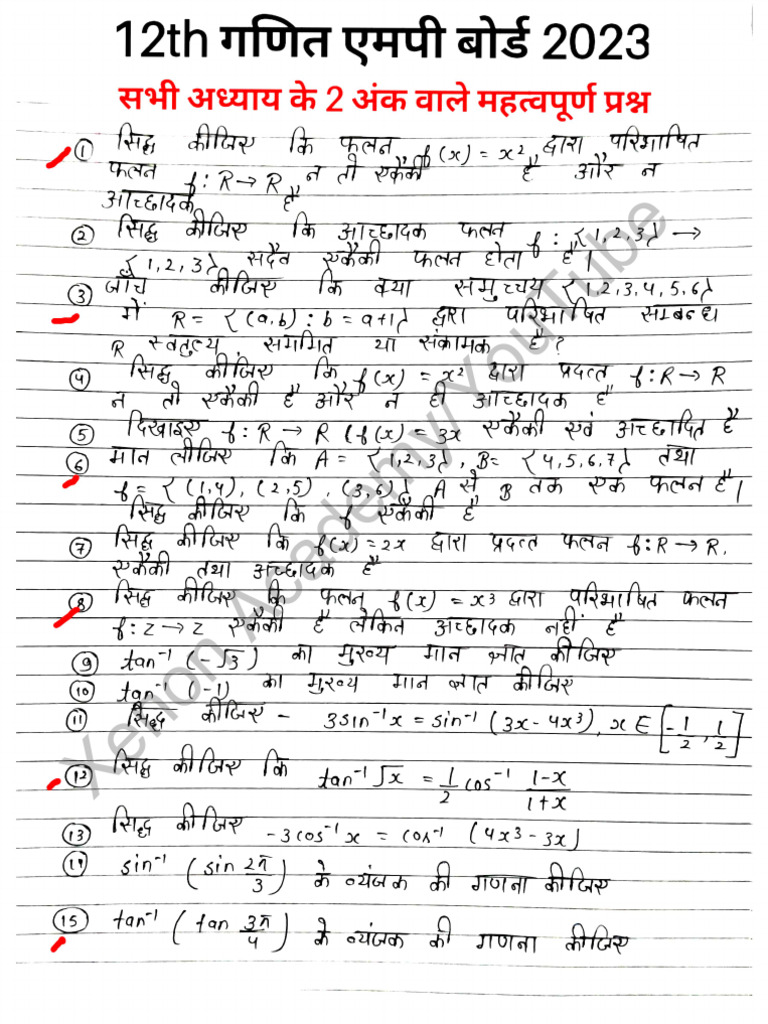 12th गणित एमपी बोर्ड 2023
सभी अध्याय के 2 अंक वाले महत्वपूर्ण प्रश्न
① सिद्ध कीजिए कि फलन f(x) = x² द्वारा परिभाषित
फलन f: R → R न तो एकैकी है और न
आच्छादक है
② सिद्ध कीजिए कि आच्छादक फलन f: {1,2,3} →
{1,2,3} सदैव एकैकी फलन होता है।
③ जाँच कीजिए कि क्या समुच्चय {1,2,3,4,5,6}
में R = {(a,b) : b = a+1} द्वारा परिभाषित सम्बन्ध
R स्वतुल्य सममित या संक्रामक है?
④ सिद्ध कीजिए कि f(x) = x² द्वारा प्रदत्त f: R → R
न तो एकैकी है और न ही आच्छादक है
⑤ दिखाइए f: R → R (f(x) = 3x एकैकी एवं अच्छादित है
⑥ मान लीजिए कि A = {1,2,3}, B = {4,5,6,7} तथा
f = {(1,4), (2,5), (3,6)} A से B तक एक फलन है।
सिद्ध कीजिए कि f एकैकी है
⑦ सिद्ध कीजिए कि f(x) = 2x द्वारा प्रदत्त फलन f: R → R,
एकैकी तथा अच्छादक है
⑧ सिद्ध कीजिए कि फलन f(x) = x³ द्वारा परिभाषित फलन
f: Z → Z एकैकी है लेकिन अच्छादक नहीं है
⑨ tan⁻¹ (-√3) का मुख्य मान ज्ञात कीजिए
⑩ tan⁻¹ (-1) का मुख्य मान ज्ञात कीजिए
⑪ सिद्ध कीजिए - 3sin⁻¹x = sin⁻¹ (3x - 4x³), x ∈ [-1/2, 1/2]
⑫ सिद्ध कीजिए कि tan⁻¹√x = 1/2 cos⁻¹ (1-x)/(1+x)
⑬ सिद्ध कीजिए -3cos⁻¹x = cos⁻¹ (4x³ - 3x)
⑭ sin⁻¹ (sin 2π/3) के व्यंजक की गणना कीजिए
⑮ tan⁻¹ (tan 3π/4) के व्यंजक की गणना कीजिए
Xenon Academy/YouTube